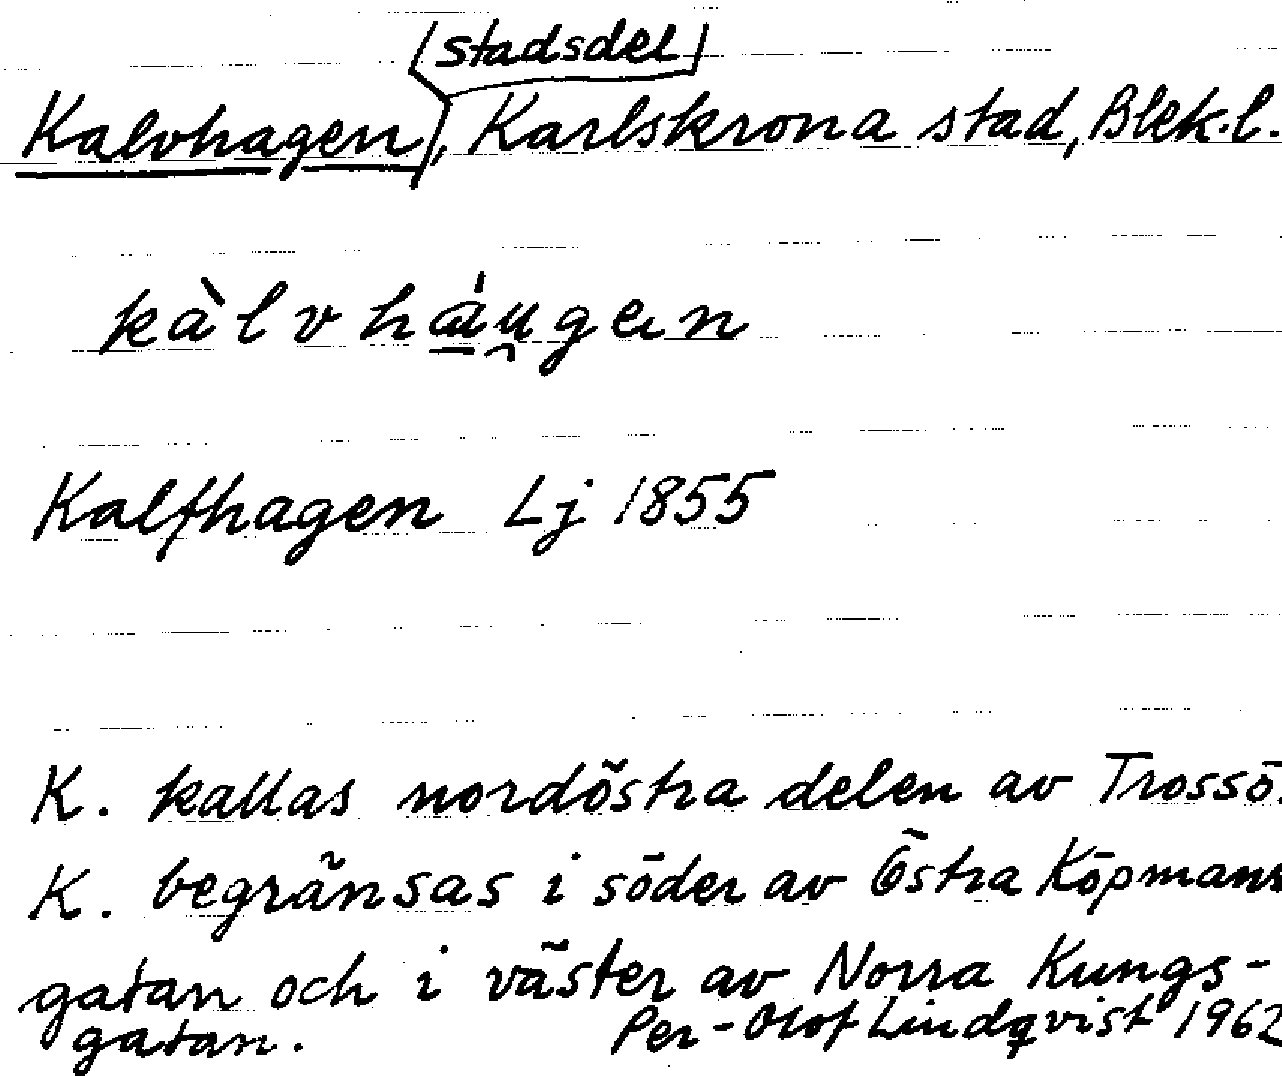 stadsdel
Kalvhagen, Karlskrona stad, Blek.l.
kàlvháugen
Kalfhagen Lj 1855
K. kallas nordöstra delen av Trossö.
K. begränsas i söder av Östra Köpmans
gatan och i väster av Norra Kungs-
gatan.
Per-Olof Lindqvist 1962